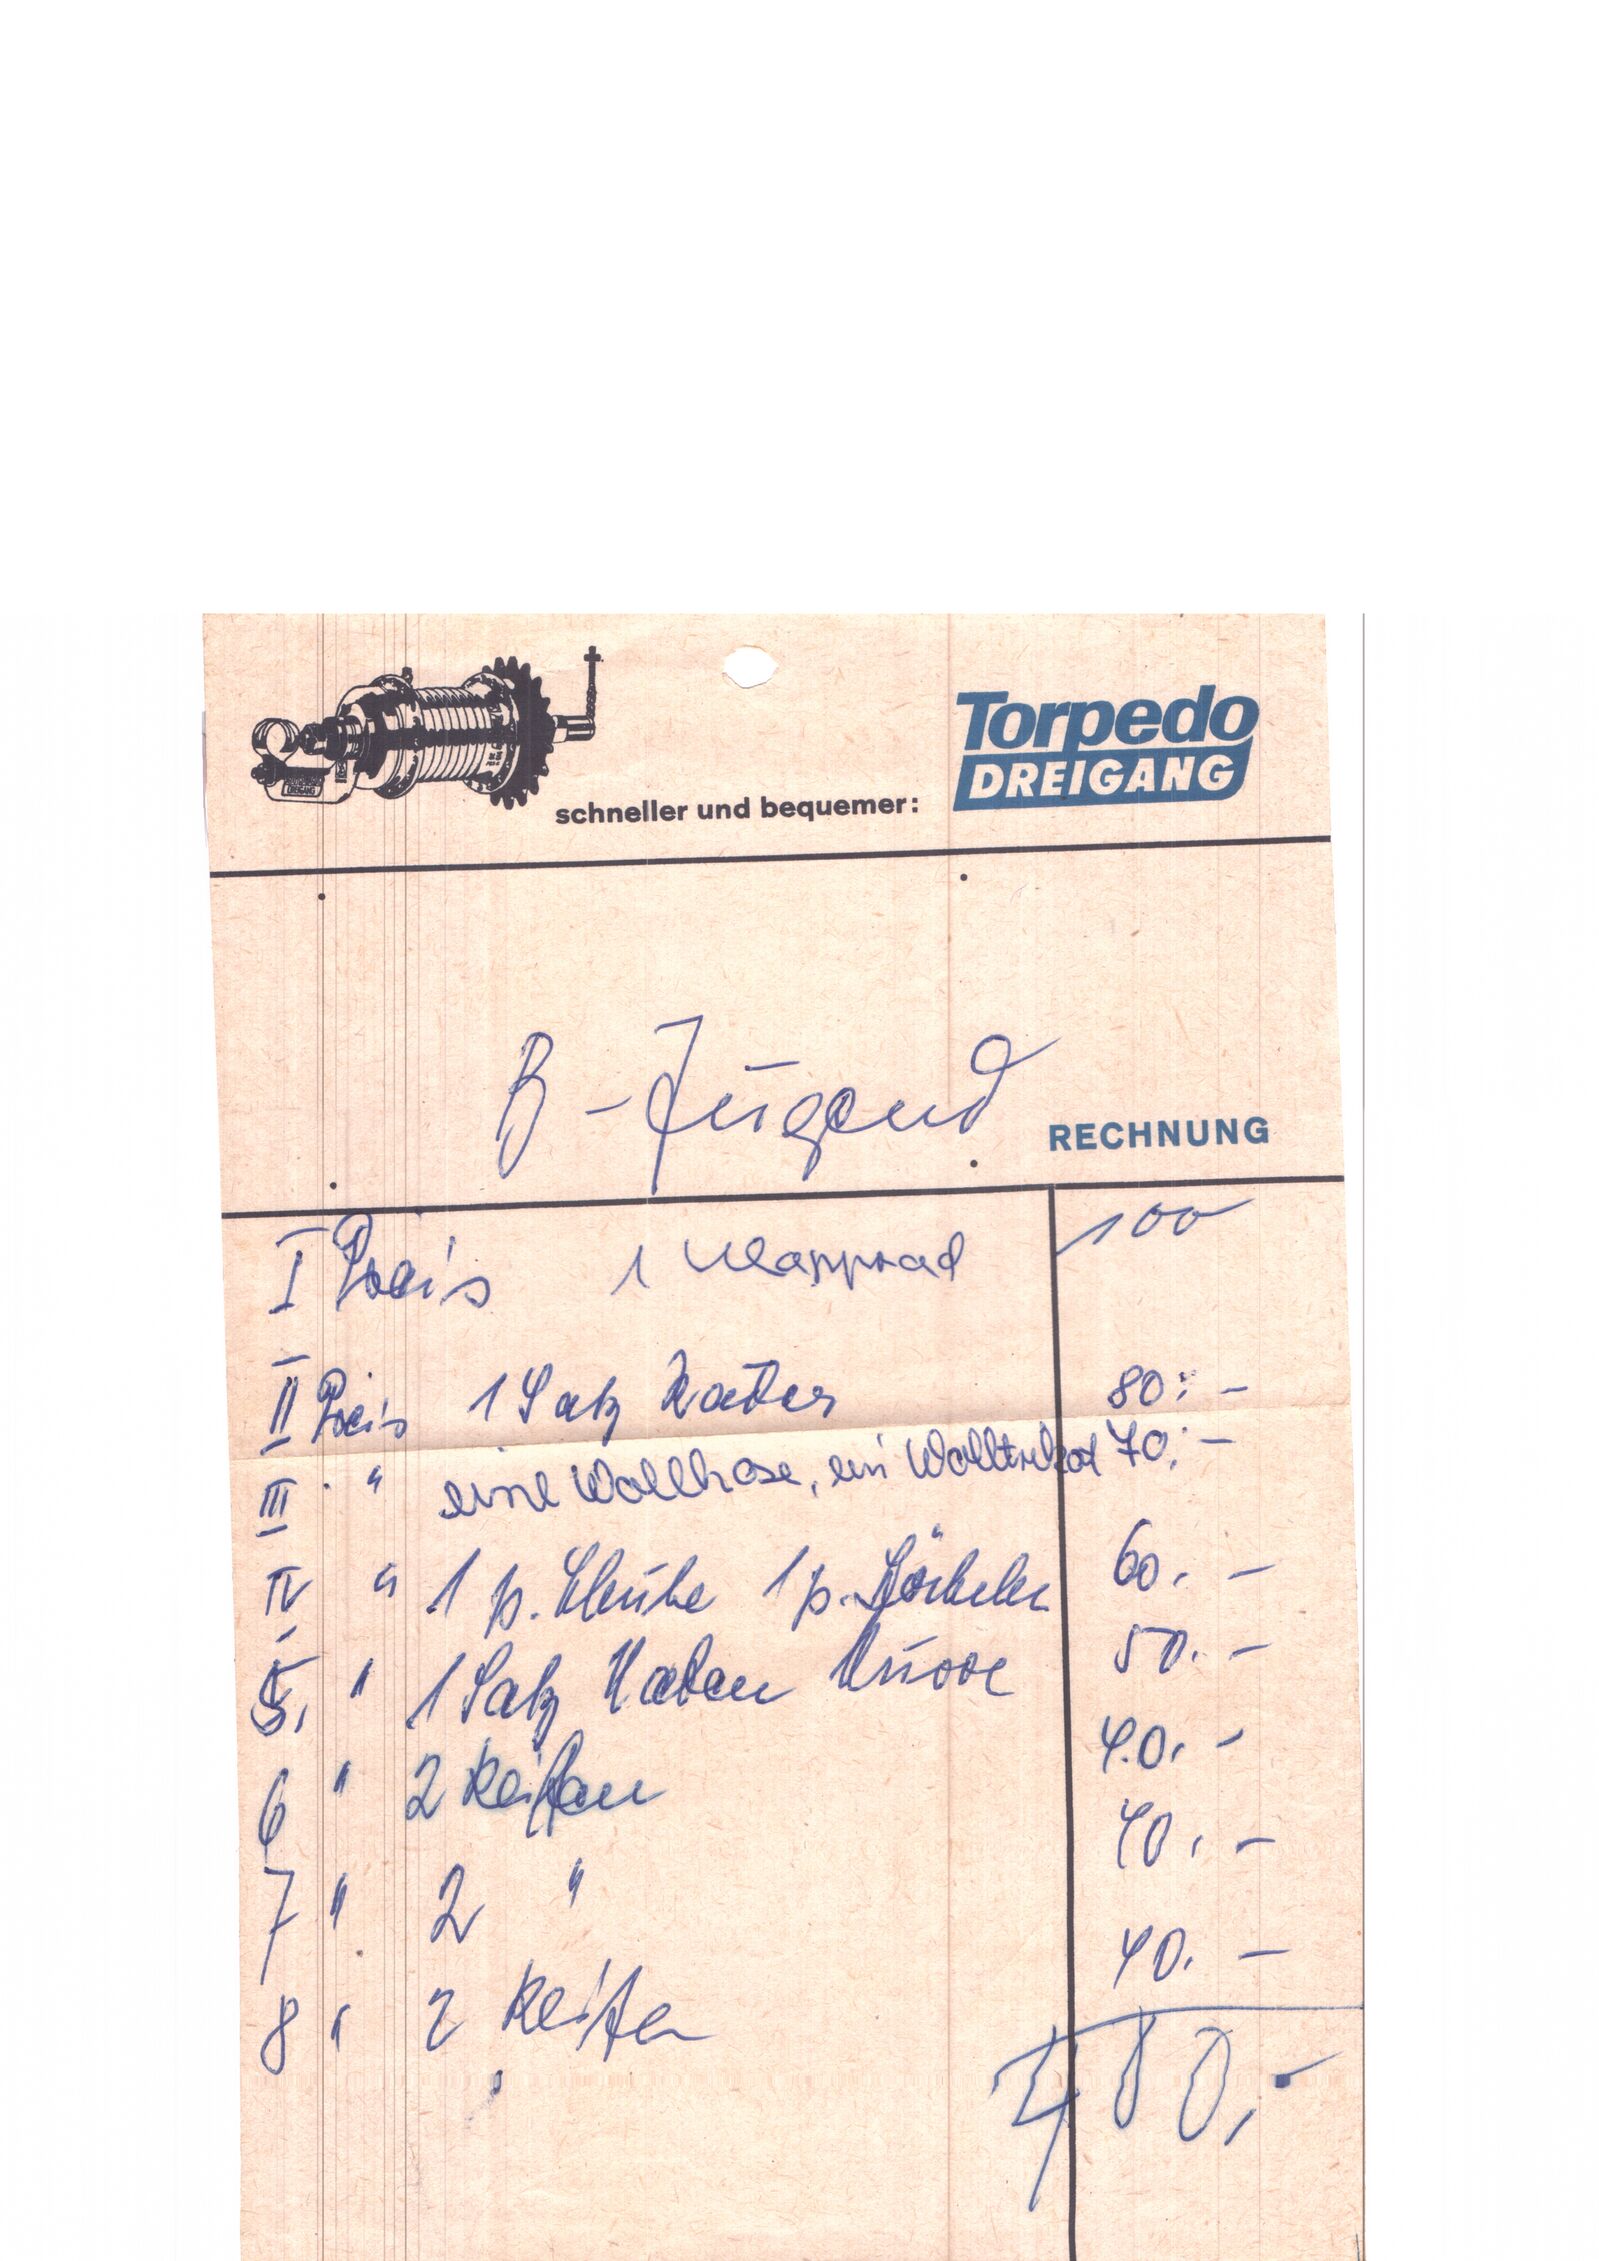 Torpedo
DREIGANG
schneller und bequemer:
B-Jugend
RECHNUNG
I Preis 1 Klapprad 100
II Preis 1 Satz Räder 80.-
III " eine Wollhose, ein Wolltrikot 70.-
IV " 1 p. 1 p. 60.-
5. " 1 Satz Naben 50.-
6 " 2 Reifen 40.-
7 " 2 " 40.-
8 " 2 Reifen 40.-
480,-